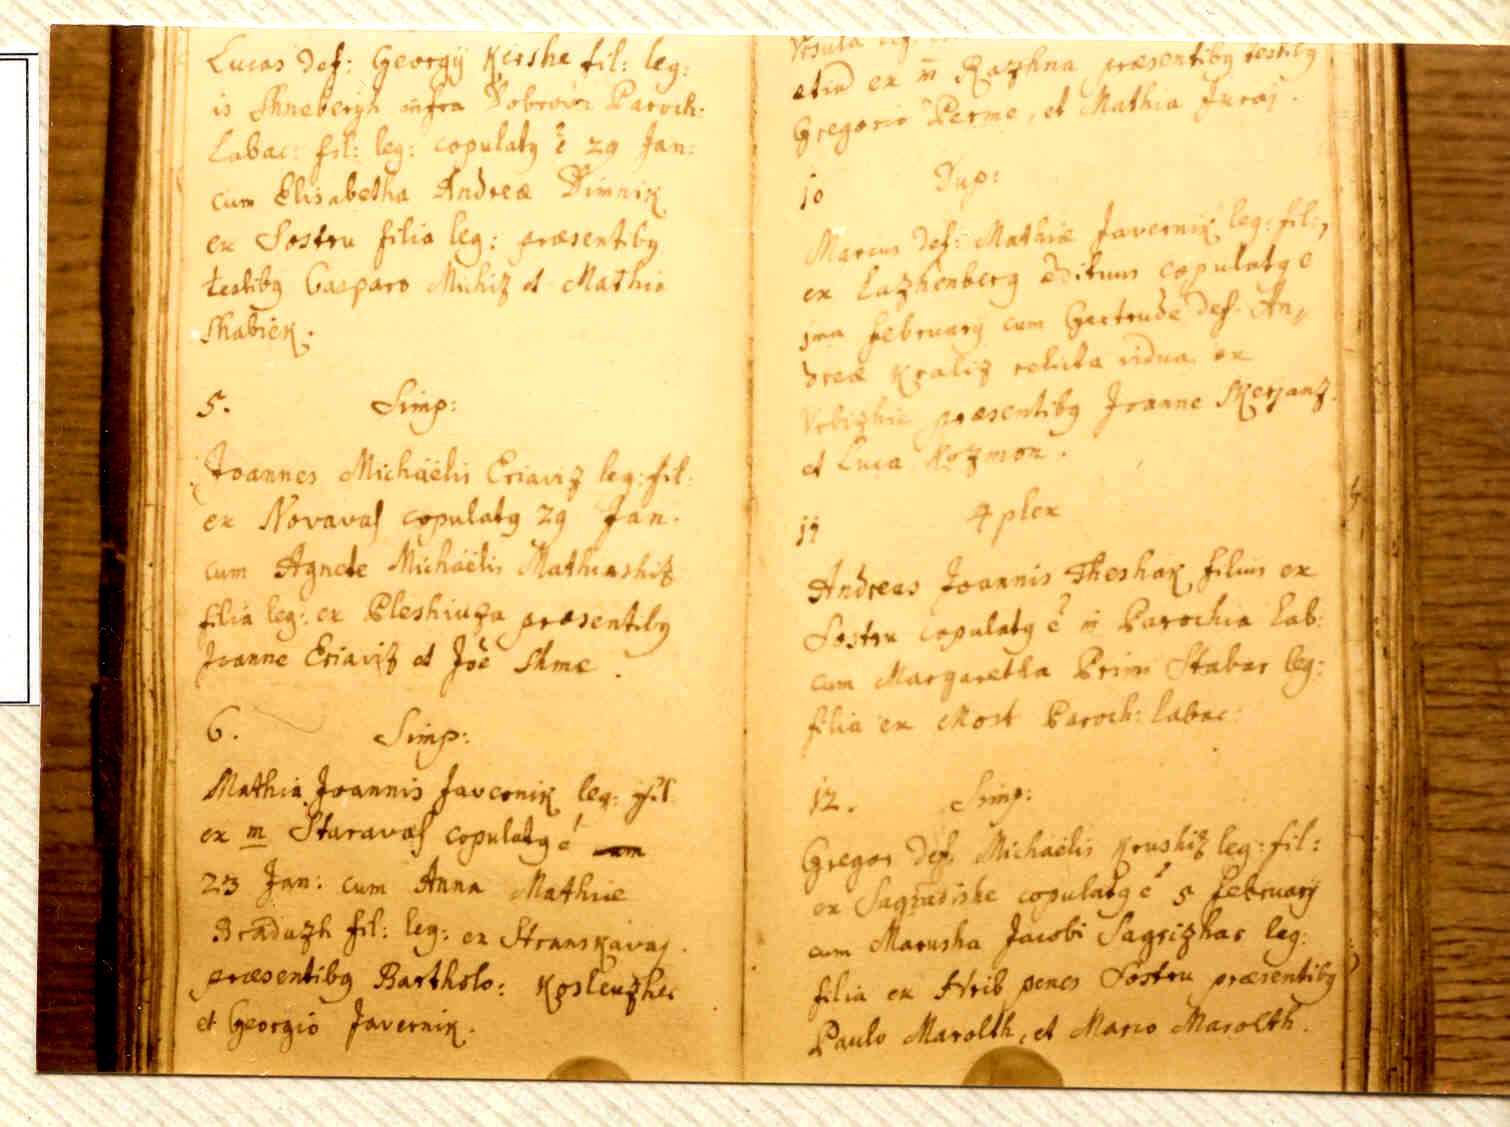 Lucas def: Georgÿ Kershe fil: leg:
is Shneberyh infra Dobrova Paroch:
Labac: fil: leg: copulatg ē 29 Jan:
cum Elisabetha Andreæ Dimnik
ex Sostru filia leg: præsentibg
testibg Gasparo Muhiz et Mathia
Shabiek.
5. Simp:
Joannes Michaëlis Eriaviz leg: fil:
ex Novavaſ copulatg 29 Jan.
cum Agnete Michaëlis Mathiashiz
filia leg: ex Pleshiuza præsentibg
Joanne Eriaviz et Joē Shme.
6. Simp:
Mathia Joannis Javernik leg: fil
ex m Staravaſ copulatg é
23 Jan: cum Anna Mathiæ
Braduzh fil: leg: ex Stranskavaſ.
præsentibg Bartholo: Kosleuzher
et Georgio Javernik.
Vrsula
ex m̄ Razhna præsentibg testibg
Gregorio Perme, et Mathia Juraj.
10 Dup:
Marcus def: Mathiæ Javernik leg: fil:,
ex Lazhenberg editus copulatg e
1ma Februarÿ cum Gertrude def. An,,
dreæ Kraliz relicta vidua ex
præsentibg Joanne Skerjanz.
et Luca Kozmon.
11 4plex
Andreas Joannis Theshak filius ex
Sostru copulatg é in Parochia Lab:
cum Margaretha Prim Stabar leg:
filia ex Most Paroch: labac:
12. Simp:
Gregor def. Michaëlis Krushiz leg: fil:
ex Sagradishe copulatg é 5 Februarÿ
cum Marusha Jacobi Sagrizhar leg:
filia ex Hrib penes Sostru præsentibg
Paulo Marolth, et Marco Marolth.